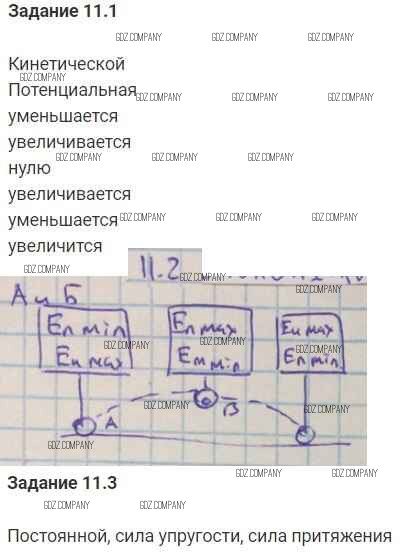 Задание 11.1
GDZ.COMPANY GDZ.COMPANY GDZ.COMPANY
Кинетической
GDZ.COMPANY
Потенциальная
GDZ.COMPANY GDZ.COMPANY GDZ.COMPANY
уменьшается
увеличивается
GDZ.COMPANY GDZ.COMPANY GDZ.COMPANY
нулю
увеличивается
уменьшается
GDZ.COMPANY GDZ.COMPANY GDZ.COMPANY
увеличится
GDZ.COMPANY
11.2
GDZ.COMPANY
А и Б
GDZ.COMPANY
Еп min Еп max Ек max
GDZ.COMPANY GDZ.COMPANY GDZ.COMPANY
Ек max Ек min Еп min
А В
GDZ.COMPANY GDZ.COMPANY
GDZ.COMPANY
GDZ.COMPANY GDZ.COMPANY
Задание 11.3
GDZ.COMPANY GDZ.COMPANY GDZ.COMPANY
Постоянной, сила упругости, сила притяжения